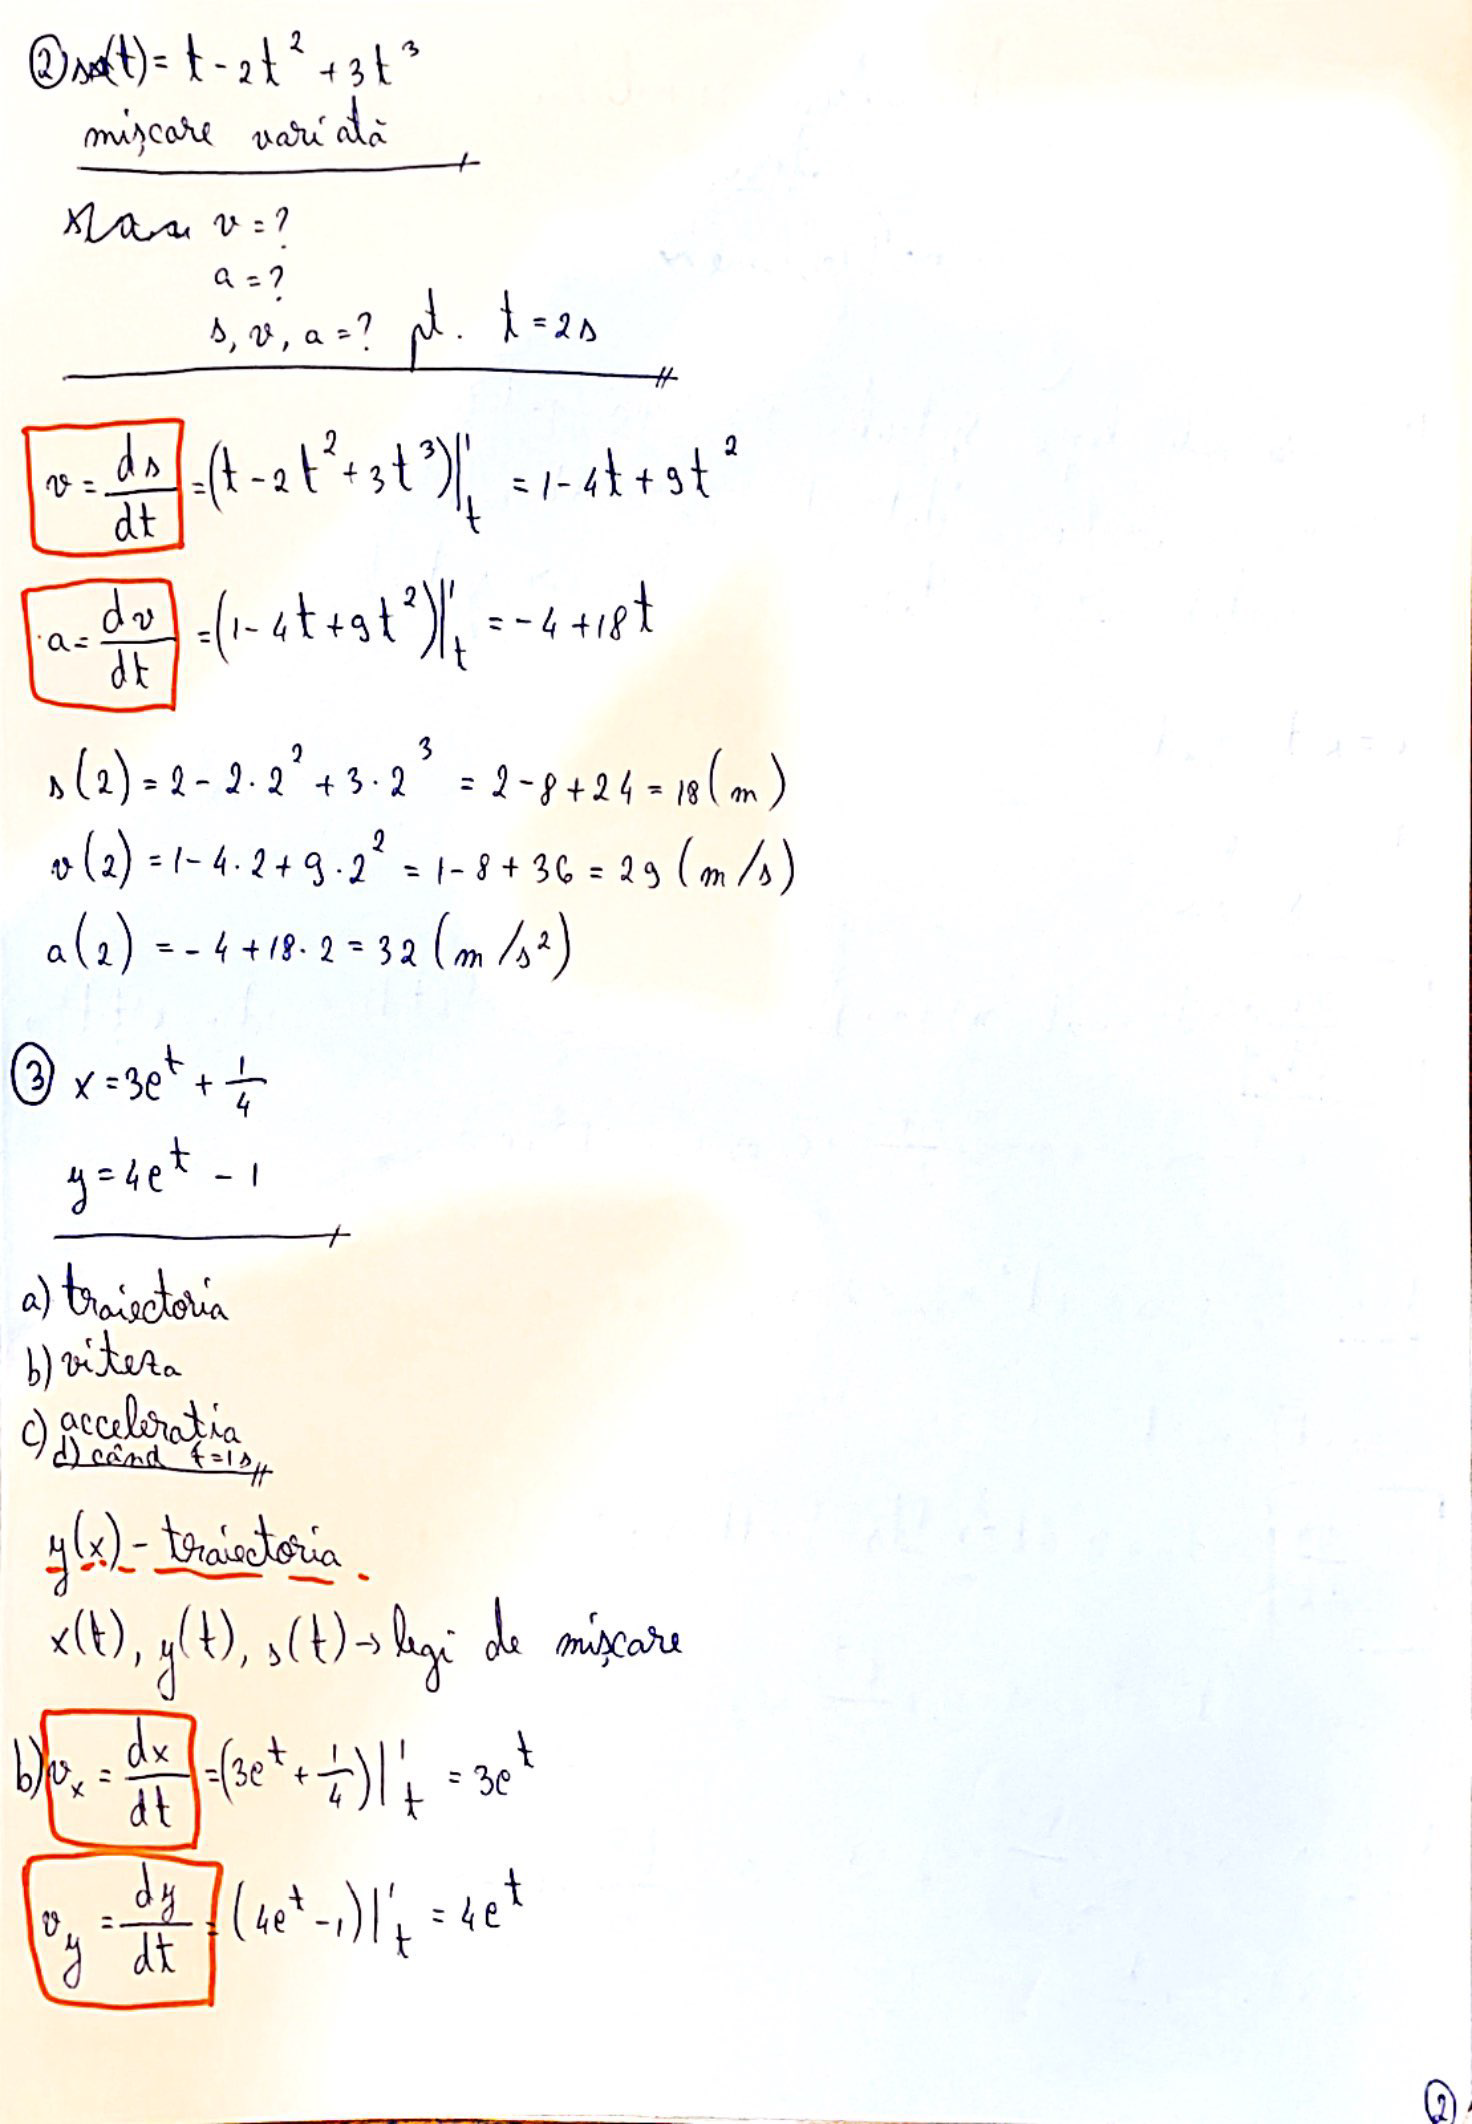 ② s(t) = t - 2t² + 3t³
mișcare variată
v = ?
a = ?
s, v, a = ? pt. t = 2s
v = ds/dt = (t - 2t² + 3t³)|'ₜ = 1 - 4t + 9t²
a = dv/dt = (1 - 4t + 9t²)|'ₜ = -4 + 18t
s(2) = 2 - 2·2² + 3·2³ = 2 - 8 + 24 = 18 (m)
v(2) = 1 - 4·2 + 9·2² = 1 - 8 + 36 = 29 (m/s)
a(2) = -4 + 18·2 = 32 (m/s²)
③ x = 3eᵗ + 1/4
y = 4eᵗ - 1
a) traiectoria
b) viteza
c) acceleratia
d) când t = 1s
y(x) - traiectoria.
x(t), y(t), s(t) → legi de mișcare
b) vₓ = dx/dt = (3eᵗ + 1/4)|'ₜ = 3eᵗ
v_y = dy/dt = (4eᵗ - 1)|'ₜ = 4eᵗ
②